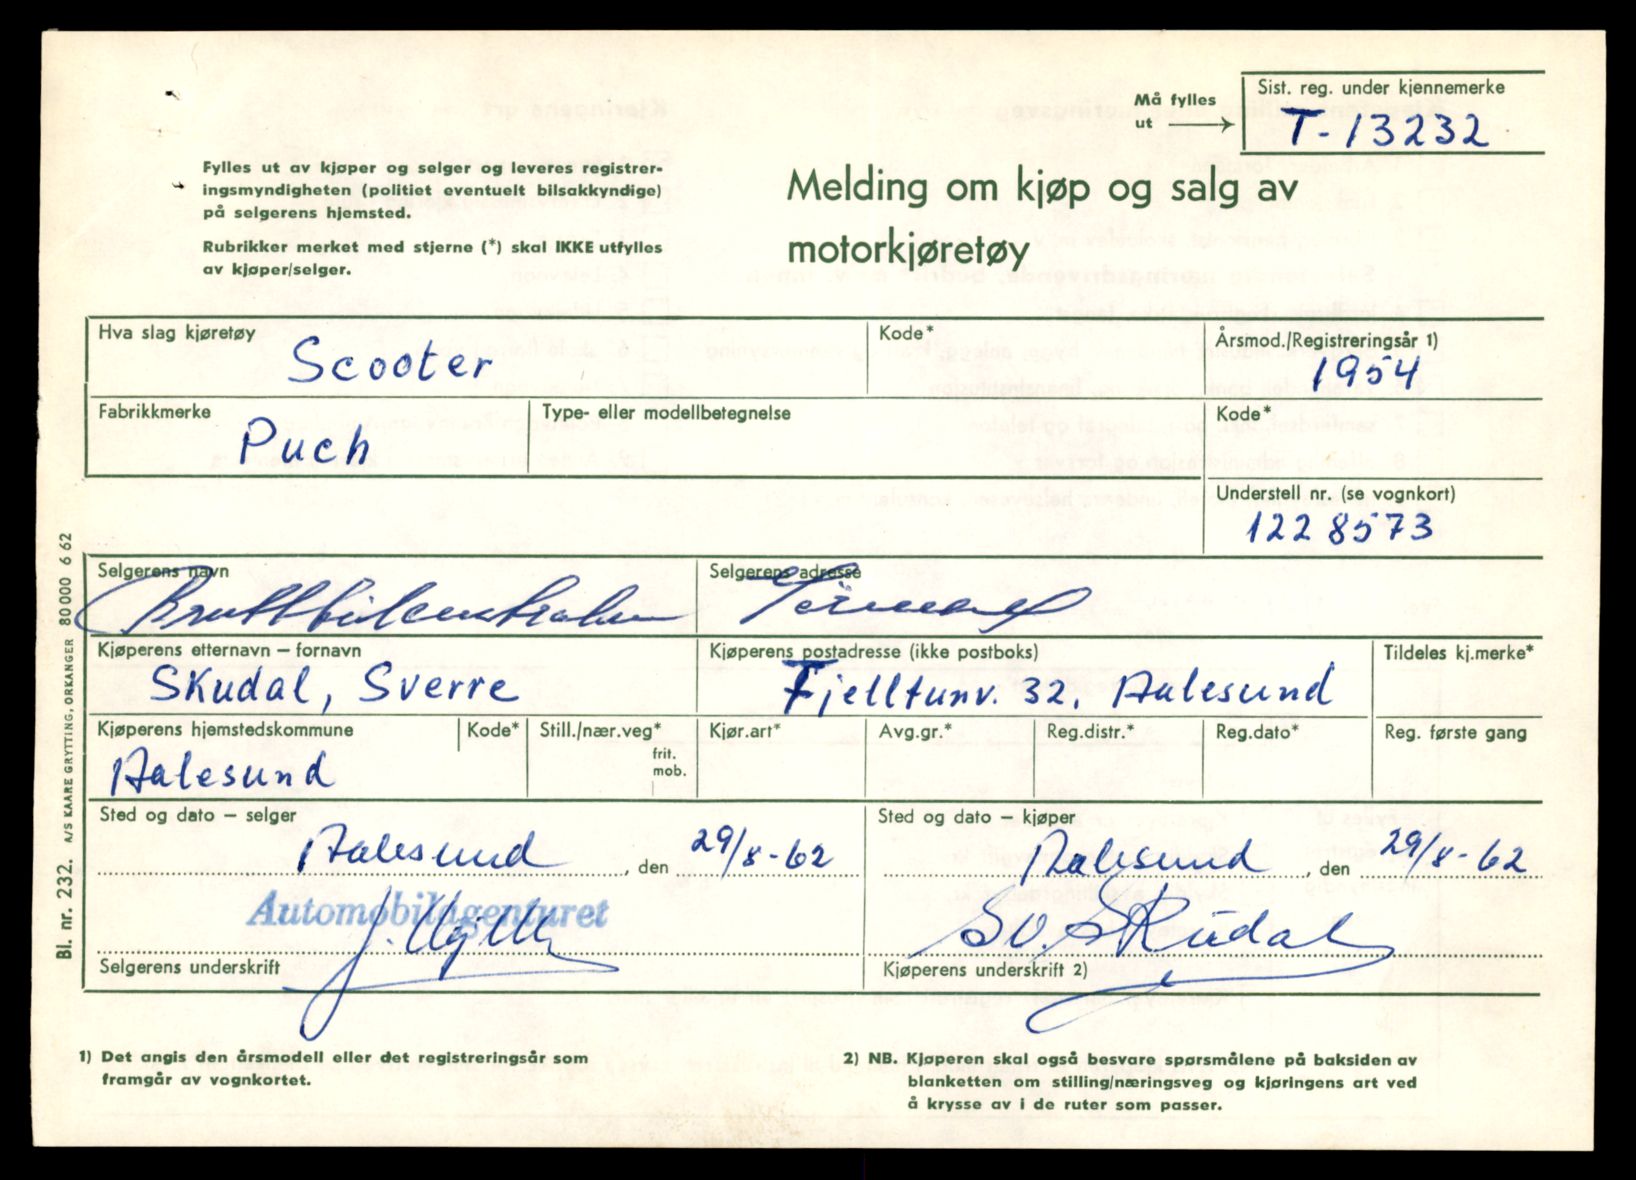 Må fylles
ut
Sist. reg. under kjennemerke
T-13232
Fylles ut av kjøper og selger og leveres registrer-
ingsmyndigheten (politiet eventuelt bilsakkyndige)
på selgerens hjemsted.
Rubrikker merket med stjerne (*) skal IKKE utfylles
av kjøper/selger.
Melding om kjøp og salg av
motorkjøretøy
Hva slag kjøretøy
Scooter
Kode*
Årsmod./Registreringsår 1)
1954
Fabrikkmerke
Puch
Type- eller modellbetegnelse
Kode*
Understell nr. (se vognkort)
1228573
Selgerens navn
Selgerens adresse
Kjøperens etternavn – fornavn
Skudal, Sverre
Kjøperens postadresse (ikke postboks)
Fjelltunv. 32, Aalesund
Tildeles kj.merke*
Kjøperens hjemstedskommune
Aalesund
Kode*
Still./nær.veg*
frit.
mob.
Kjør.art*
Avg.gr.*
Reg.distr.*
Reg.dato*
Reg. første gang
Sted og dato – selger
Aalesund, den 29/8-62
Automobilagenturet
Selgerens underskrift
Sted og dato – kjøper
Aalesund, den 29/8-62
Sv. Skudal
Kjøperens underskrift 2)
1) Det angis den årsmodell eller det registreringsår som
framgår av vognkortet.
2) NB. Kjøperen skal også besvare spørsmålene på baksiden av
blanketten om stilling/næringsveg og kjøringens art ved
å krysse av i de ruter som passer.
Bl. nr. 232. A/S KAARE GRYTTING, ORKANGER 80 000 6 62